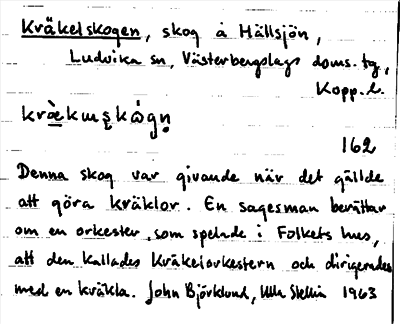 Kräkelskogen, skog å Hällsjön,
Ludvika sn, Västerbergslags doms. tg,
Kopp. l.
kræ̀kɯʂkὼgṇ
162
Denna skog var givande när det gällde
att göra kräklor. En sagesman berättar
om en orkester, som spelade i Folkets hus,
att den kallades Kräkelorkestern och dirigerades
med en kräkla. John Björklund, Ulla Stellin 1963